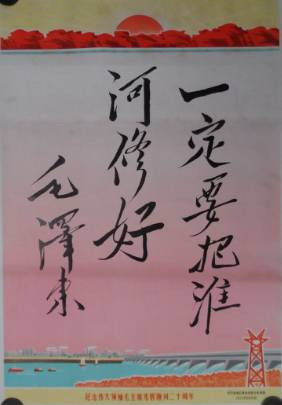 一定要把淮
河修好
毛泽东
纪念伟大领袖毛主席光辉题词二十周年